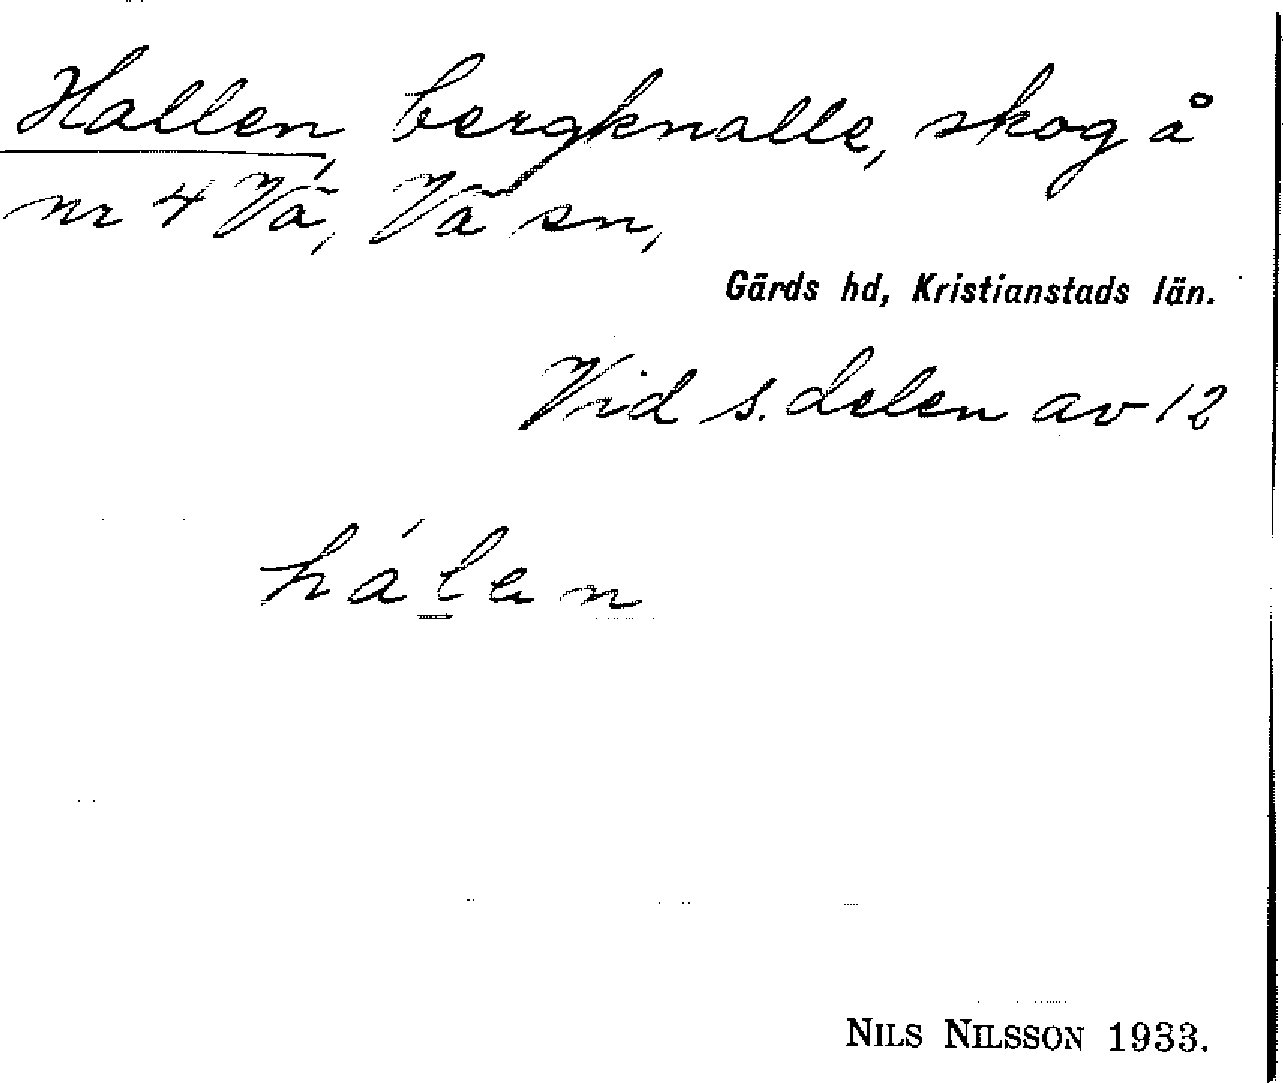 Hallen, bergknalle, skog å
nr 4 Vä, Vä sn,
Gärds hd, Kristianstads län.
Vid s. delen av 12
hálen
NILS NILSSON 1933.